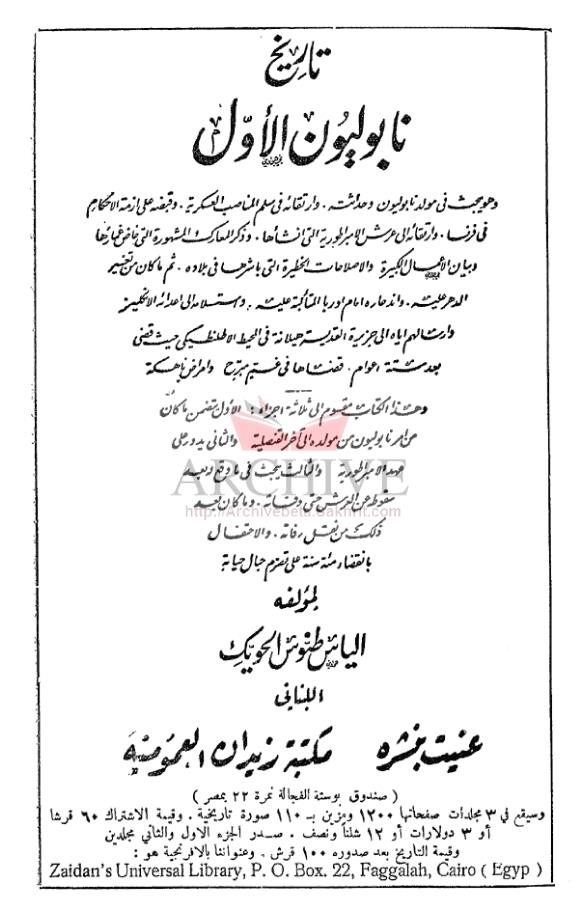 تاريخ
نابوليون الأول
وهو يبحث في مولد نابوليون وحداثته . وارتقائه في سلم المناصب العسكرية . وقبضه على ازمة الاحكام
في فرنسا . وارتقائه الى عرش الامبراطورية التي انشأها . وذكر المعارك المشهورة التي خاض غمارها
وبيان الأعمال الكبيرة والاصلاحات الخطيرة التي باشرها في بلاده . ثم ما كان من تغير
الدهر عليه . واندحاره امام اوربا المتألبة عليه . واستسلامه الى اعدائه الانكليز
وارسالهم اياه الى جزيرة القديسة هيلانة في المحيط الاطلنطيكي حيث قضى
بعد ستة اعوام . قضاها في غم مبرح وامراض ناهكة
وهذا الكتاب مقسوم الى ثلاثة اجزاء : الأول تضمن ما كان
من امر نابوليون من مولده الى آخر القنصلية والثاني يدور على
عهد الامبراطورية والثالث يبحث في ما وقع له بعد
سقوطه عن العرش حتى وفاته . وما كان بعد
ذلك من نقل رفاته . والاحتفال
بانقضاء مئة سنة على تصرم حبال حياته
ARCHIVE
http://Archivebeta.Sakhrit.com
لمؤلفه
الياس طنوس الحويك
اللبناني
عنيت بنشره مكتبة زيدان العمومية
( صندوق بوستة الفجالة نمرة ٢٢ بمصر )
وسيقع في ٣ مجلدات صفحاتها ١٢٠٠ ومزين بـ ١١٠ صورة تاريخية . وقيمة الاشتراك ٦٠ قرشا
أو ٣ دولارات أو ١٢ شلنا ونصف . صدر الجزء الاول والثاني مجلدين
وقيمة التاريخ بعد صدوره ١٠٠ قرش . وعنواننا بالافرنجية هو :
Zaidan's Universal Library, P. O. Box. 22, Faggalah, Cairo ( Egypt )